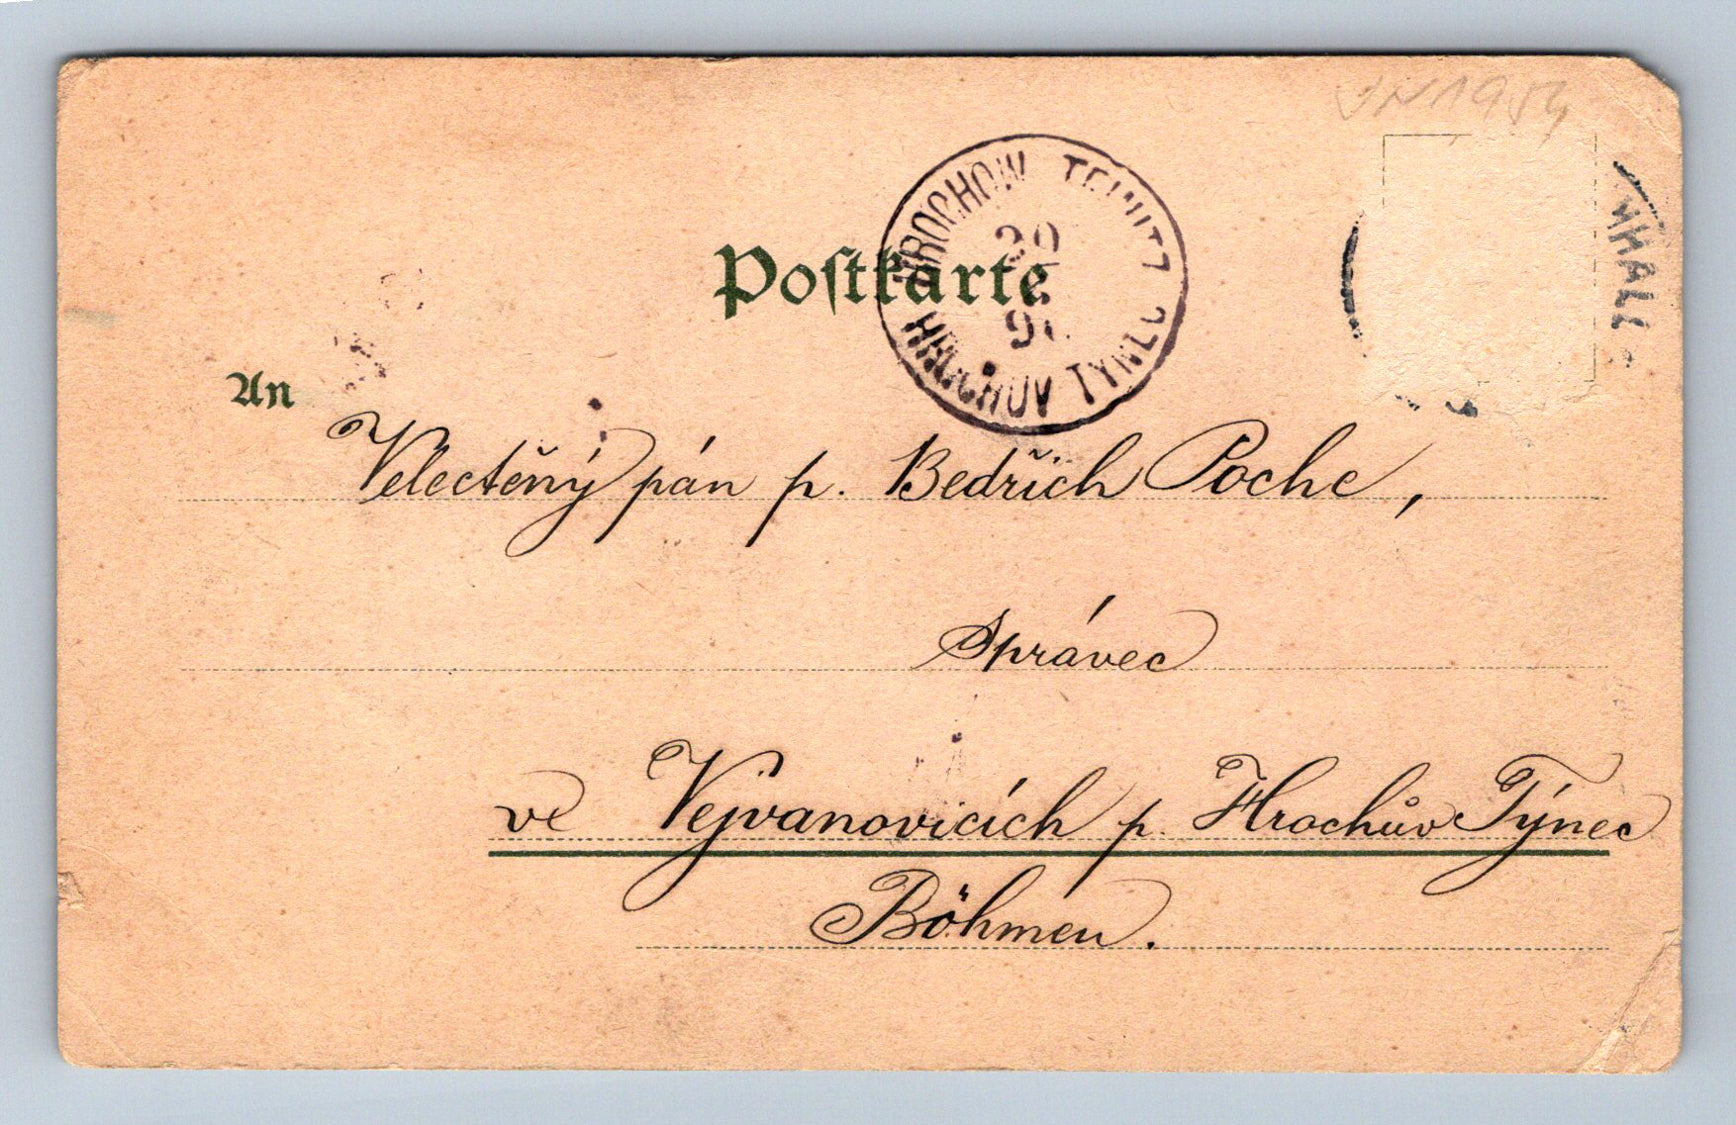 JN1954
HROCHOW TEINITZ
20
97
HROCHUV TYNEC
Postkarte
An
Velectěný pán p. Bedřich Poche,
Správec
ve Vejvanovicích p. Hrochův Týnec
Böhmen.